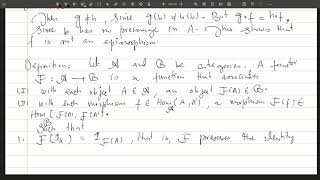 Then g ≠ h, since g(b) ≠ h(b). But g∘f = h∘f,
since b has no preimage in A. This shows that
f is not an epimorphism.
Definition: Let A and B be categories. A functor
F: A → B is a function that associates
(I) with each object A ∈ A, an object F(A) ∈ B.
(II) with each morphism f ∈ Hom(A, A'), a morphism F(f) ∈
Hom(F(A), F(A')).
Such that
1. F(1_A) = 1_F(A), that is, F preserves the identity